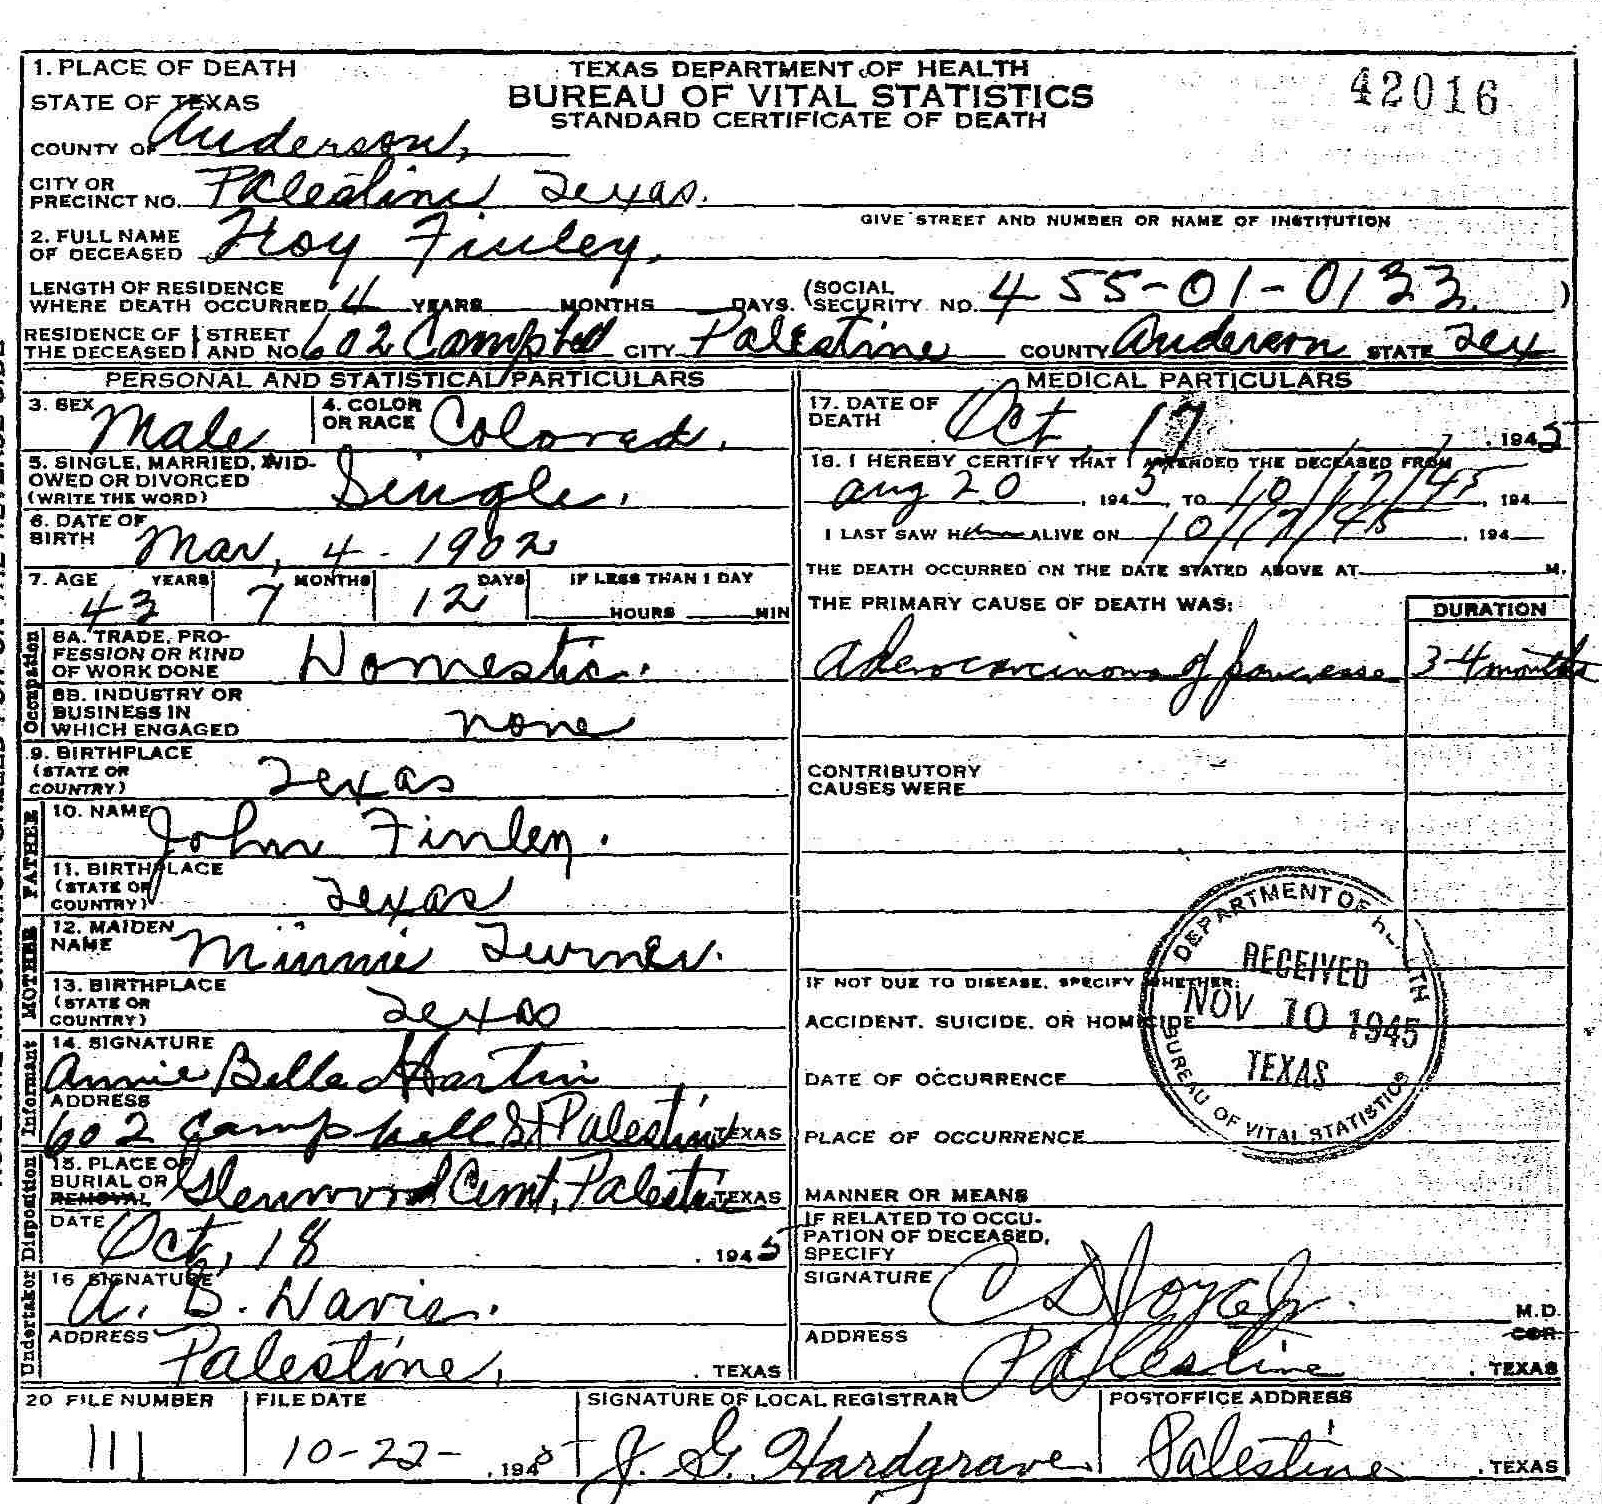 1. PLACE OF DEATH
STATE OF TEXAS
TEXAS DEPARTMENT OF HEALTH
BUREAU OF VITAL STATISTICS
STANDARD CERTIFICATE OF DEATH
42016
COUNTY OF Anderson,
CITY OR PRECINCT NO. Palestine Texas.
GIVE STREET AND NUMBER OR NAME OF INSTITUTION
2. FULL NAME OF DECEASED Finley,
LENGTH OF RESIDENCE WHERE DEATH OCCURRED 4 YEARS MONTHS DAYS. (SOCIAL SECURITY NO. 455-01-0133 )
RESIDENCE OF THE DECEASED STREET AND NO. 602 Campbell CITY Palestine COUNTY Anderson STATE Tex
PERSONAL AND STATISTICAL PARTICULARS
3. SEX Male 4. COLOR OR RACE Colored.
5. SINGLE, MARRIED, WIDOWED OR DIVORCED (WRITE THE WORD) Single.
6. DATE OF BIRTH Mar, 4 - 1902
7. AGE YEARS MONTHS DAYS IF LESS THAN 1 DAY
43 7 12 HOURS MIN
Occupation
8A. TRADE, PRO-
FESSION OR KIND
OF WORK DONE Domestic.
8B. INDUSTRY OR
BUSINESS IN
WHICH ENGAGED none
9. BIRTHPLACE
(STATE OR
COUNTRY) Texas
FATHER
10. NAME John Finley.
11. BIRTHPLACE
(STATE OR
COUNTRY) Texas
MOTHER
12. MAIDEN
NAME Minnie Turner.
13. BIRTHPLACE
(STATE OR
COUNTRY) Texas
Informant
14. SIGNATURE
Annie Bella
ADDRESS
602 Campbell St Palestine TEXAS
Disposition
15. PLACE OF
BURIAL OR
REMOVAL Glenwood Cemt, Palestine TEXAS
DATE Oct, 18 , 1945
Undertaker
16 SIGNATURE
A. B. Davis.
ADDRESS Palestine, . TEXAS
MEDICAL PARTICULARS
17. DATE OF
DEATH Oct, 17 , 1945
18. I HEREBY CERTIFY THAT I ATTENDED THE DECEASED FROM
Aug 20 , 1945 TO 10/17/45 , 194
I LAST SAW H ALIVE ON 10/17/45 , 194
THE DEATH OCCURRED ON THE DATE STATED ABOVE AT M.
THE PRIMARY CAUSE OF DEATH WAS: DURATION
Adenocarcinoma of pancreas 3-4 months
CONTRIBUTORY
CAUSES WERE
IF NOT DUE TO DISEASE, SPECIFY WHETHER:
ACCIDENT, SUICIDE, OR HOMICIDE
DATE OF OCCURRENCE
PLACE OF OCCURRENCE
DEPARTMENT OF HEALTH
RECEIVED
NOV 10 1945
TEXAS
BUREAU OF VITAL STATISTICS
MANNER OR MEANS
IF RELATED TO OCCU-
PATION OF DECEASED,
SPECIFY
SIGNATURE M.D.
COR.
ADDRESS Palestine . TEXAS
20 FILE NUMBER FILE DATE SIGNATURE OF LOCAL REGISTRAR POSTOFFICE ADDRESS
111 10-22- , 1945 J. G. Hardgrave Palestine . TEXAS